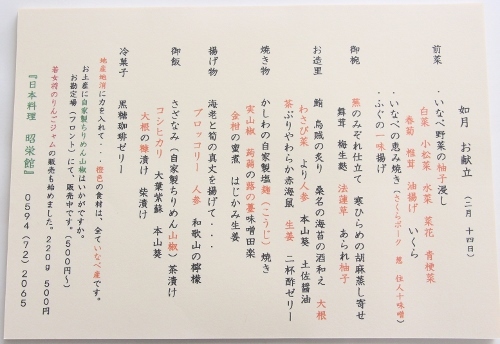 如月 お献立 (二月 十四日)
前菜 ・いなべ野菜の柚子浸し
白菜 小松菜 水菜 菜花 青梗菜
春菊 椎茸 油揚げ いくら
・いなべの恵み焼き(さくらポーク 葱 仕人十味噌)
・ふぐの一味揚げ
御椀 蕪のみぞれ仕立て 寒ひらめの胡麻蒸し寄せ
舞茸 梅生麩 法蓮草 あられ柚子
お造里 鮪 烏賊の炙り 桑名の海苔の酒和え 大根
わさび菜 より人参 本山葵 土佐醤油
茶ぶりやわらか赤海鼠 生姜 二杯酢ゼリー
焼き物 かしわの自家製塩麹(こうじ)焼き
実山椒 蒟蒻の蕗の薹味噌田楽
金柑の蜜煮 はじかみ生姜
揚げ物 海老と筍の真丈を揚げて・・・
ブロッコリー 人参 和歌山の檸檬
御飯 さざなみ(自家製ちりめん山椒)茶漬け
コシヒカリ 大葉紫蘇 本山葵
大根の糠漬け 柴漬け
冷菓子 黒糖珈琲ゼリー
地産地消に力を入れて・・・橙色の食材は、全ていなべ産です。
お土産に自家製ちりめん山椒はいかがですか。
お勘定場(フロント)にて、販売中です。(500円~)
若女将のりんごジャムの販売も始めました。220g 500円
『日本料理 昭栄館』 0594(72)2065